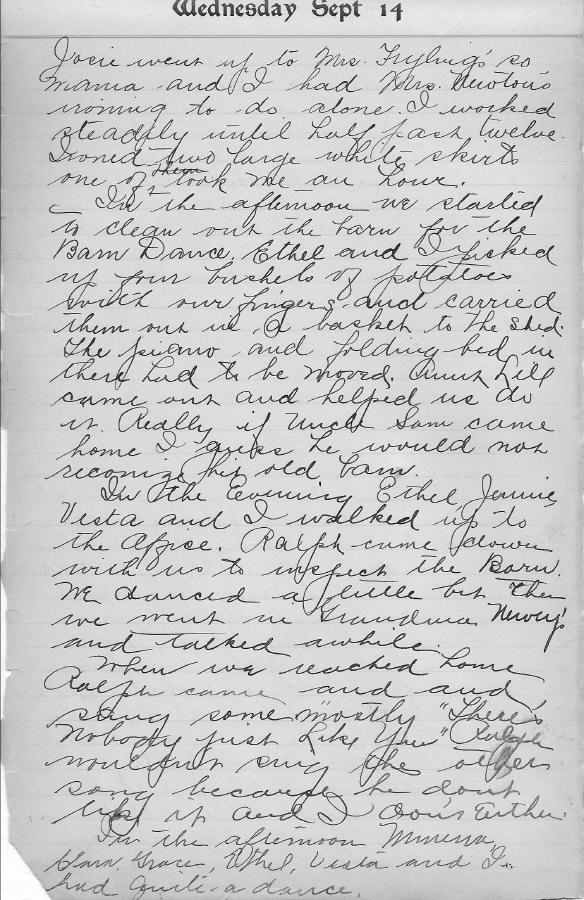 Wednesday Sept 14
Josie went up to Mrs. Fryling's so
mama and I had Mrs. Newton's
ironing to do alone. I worked
steadily until half past twelve.
Ironed two large white skirts
one of them took me an hour.
In the afternoon we started
to clean out the barn for the
Barn Dance, Ethel and I picked
up four bushels of potatoes
with our fingers and carried
them out in a basket to the shed.
The piano and folding bed in
there had to be moved. Aunt Lill
came out and helped us do
it. Really if Uncle Sam came
home I guess he would not
reconize his old barn.
In the Evening Ethel Jennie,
Vesta and I walked up to
the Office. Ralph came down
with us to inspect the Barn.
We danced a little bit then
we went in Grandma
and talked awhile.
When we reached home
Ralph came and and
sang some mostly "There's
Nobody just Like You" Ralph
wouldn't sing the other
song because he dont
like it and I don't Either.
In the afternoon Minerva,
Clara, Grace, Ethel, Vesta and I
had quite a dance.